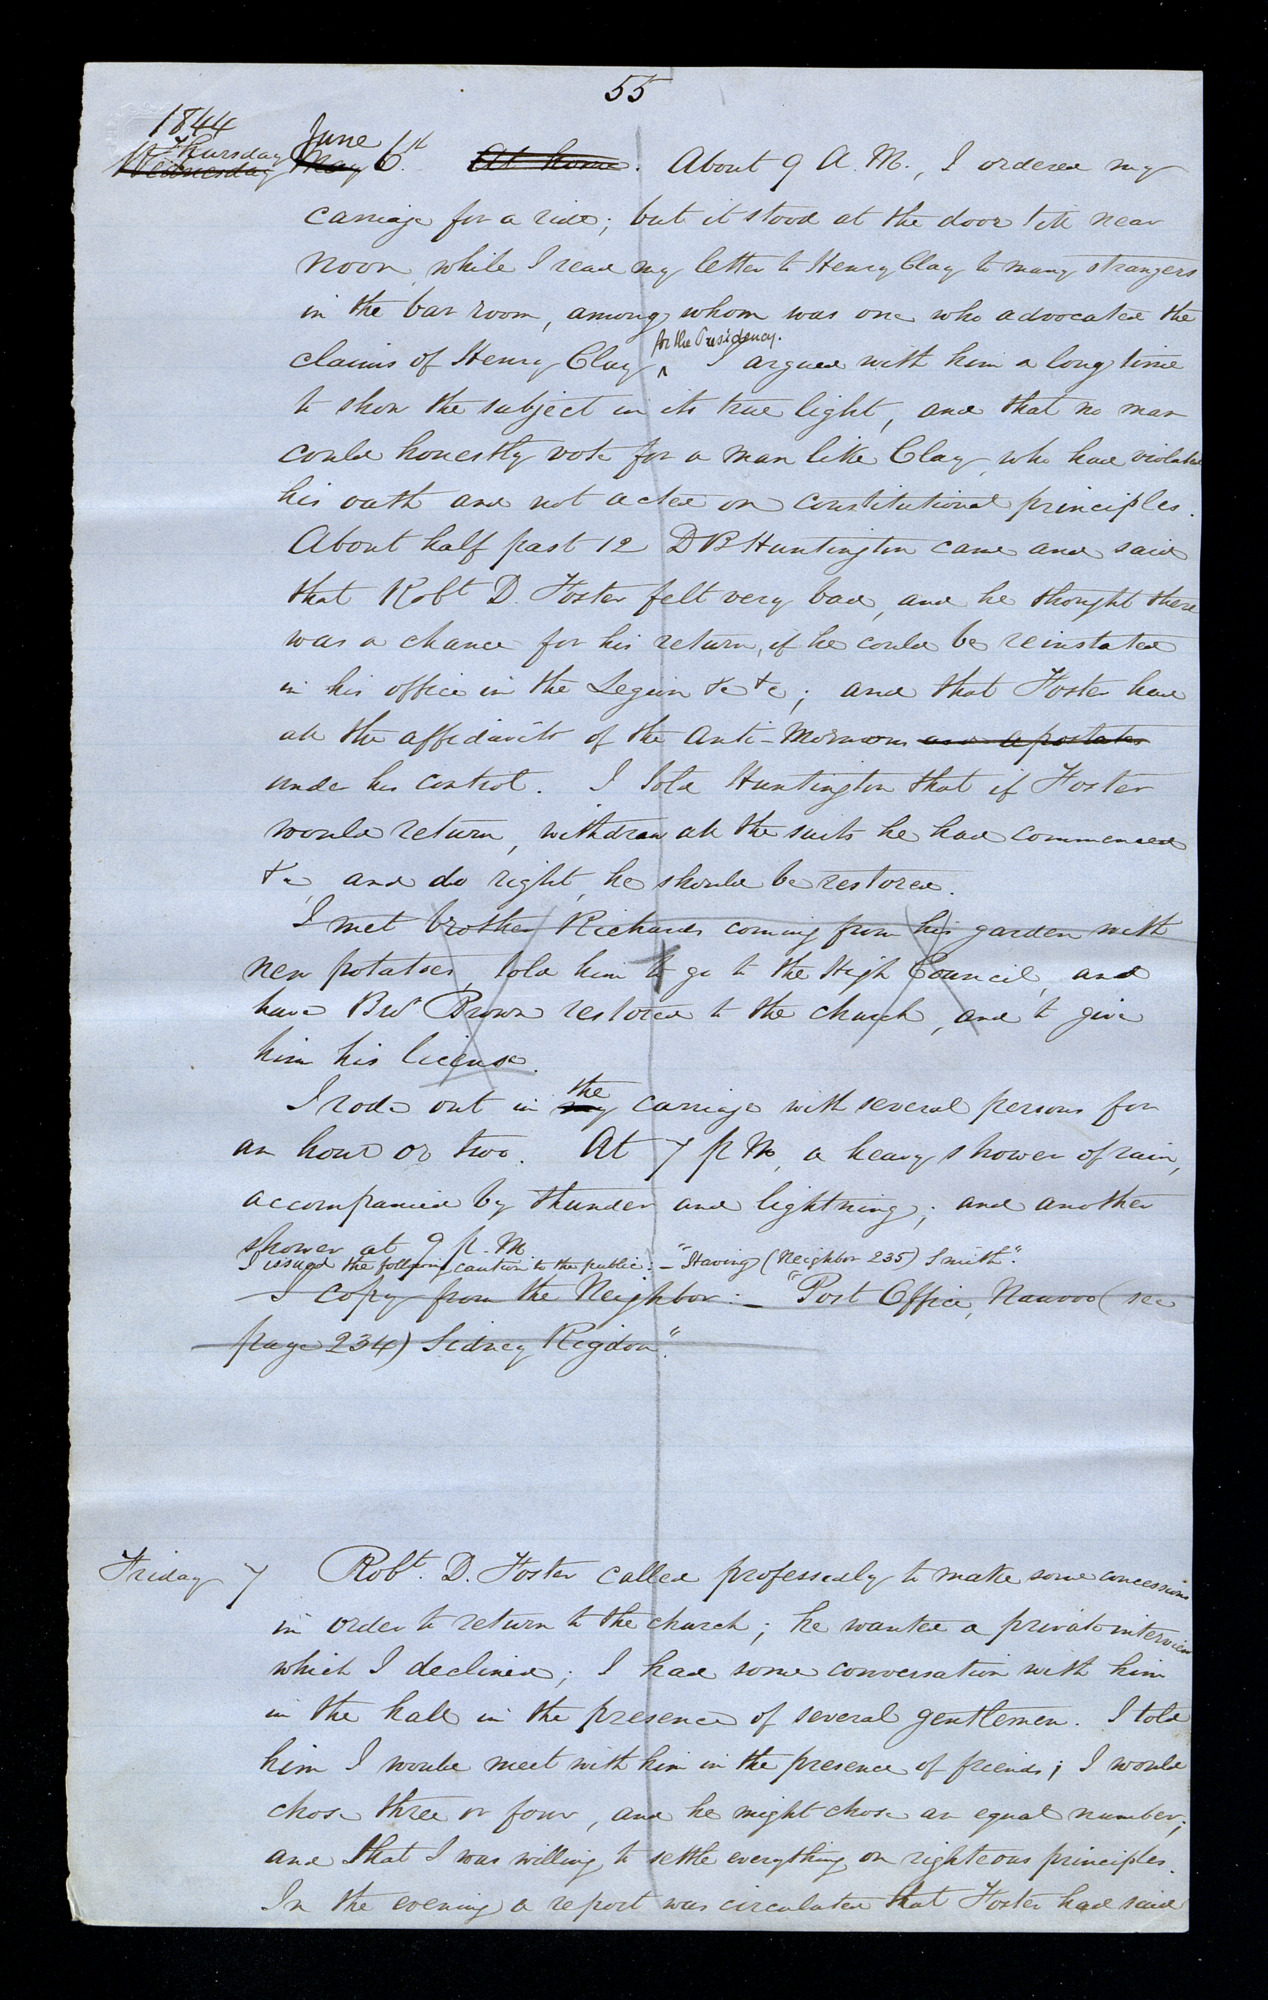 55
1844
Thursday June
Wednesday May 6th. At home. About 9 A. M., I ordered my
carriage for a ride; but it stood at the door till near
noon, while I read my letter to Henry Clay to many strangers
in the bar room, among whom was one who advocated the
claims of Henry Clay for the Presidency. I argued with him a long time
to show the subject in its true light, and that no man
could honestly vote for a man like Clay, who had violated
his oath and not acted on constitutional principles.
About half past 12 D B Huntington came and said
that Robt D. Foster felt very bad, and he thought there
was a chance for his return, if he could be reinstated
in his office in the Legion &c &c; and that Foster had
all the affidavits of the anti-Mormons and apostates
under his control. I told Huntington that if Foster
would return, withdraw all the suits he had commenced
&c, and do right, he should be restored.
I met brother Richards coming from his garden with
new potatoes, told him to go to the High Council, and
have Bro Brown restored to the church, and to give
him his license.
I rode out in my the carriage with several persons for
an hour or two. At 7 p M, a heavy shower of rain,
accompanied by thunder and lightning; and another
shower at 9 p. M.
I issued the following caution to the public:— "Having (Neighbor 235) Smith".
I copy from the Neighbor:— "Post Office, Nauvoo (see
page 234) Sidney Rigdon".
Friday 7 Robt. D. Foster called professedly to make some concessions
in order to return to the church; he wanted a private interview
which I declined; I had some conversation with him
in the hall in the presence of several gentlemen. I told
him I would meet with him in the presence of friends; I would
chose three or four, and he might chose an equal number;
and that I was willing to settle everything on righteous principles.
In the evening a report was circulated that Foster had said